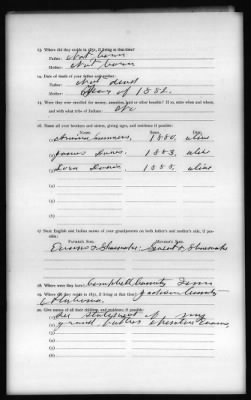 13. Where did they reside in 1851, if living at that time?
Father: Not born
Mother: Not born
14. Date of death of your father and mother:
Father: Not dead Mother: of 1882.
15. Were they ever enrolled for money, annuities, land or other benefits? If so, state when and where,
and with what tribe of Indians:
16. Name all your brothers and sisters, giving ages, and residence if possible:
Name. Born. Died.
(1) 1880, alive
(2) James Evans 1883, alive
(3) Dora Evans 1885, alive
(4)
(5)
(6)
17. State English and Indian names of your grandparents on both father's and mother's side, if pos-
sible:
Father's Side. Mother's Side.
Evans & Shoemaker.
18. Where were they born? Campbell County Tenn
19. Where did they reside in 1851, if living at that time? Jackson County
Alabama.
20. Give names of all their children, and residence, if possible:
(1) See statement of my
(2) grand
(3)
(4)
(5)
(6)